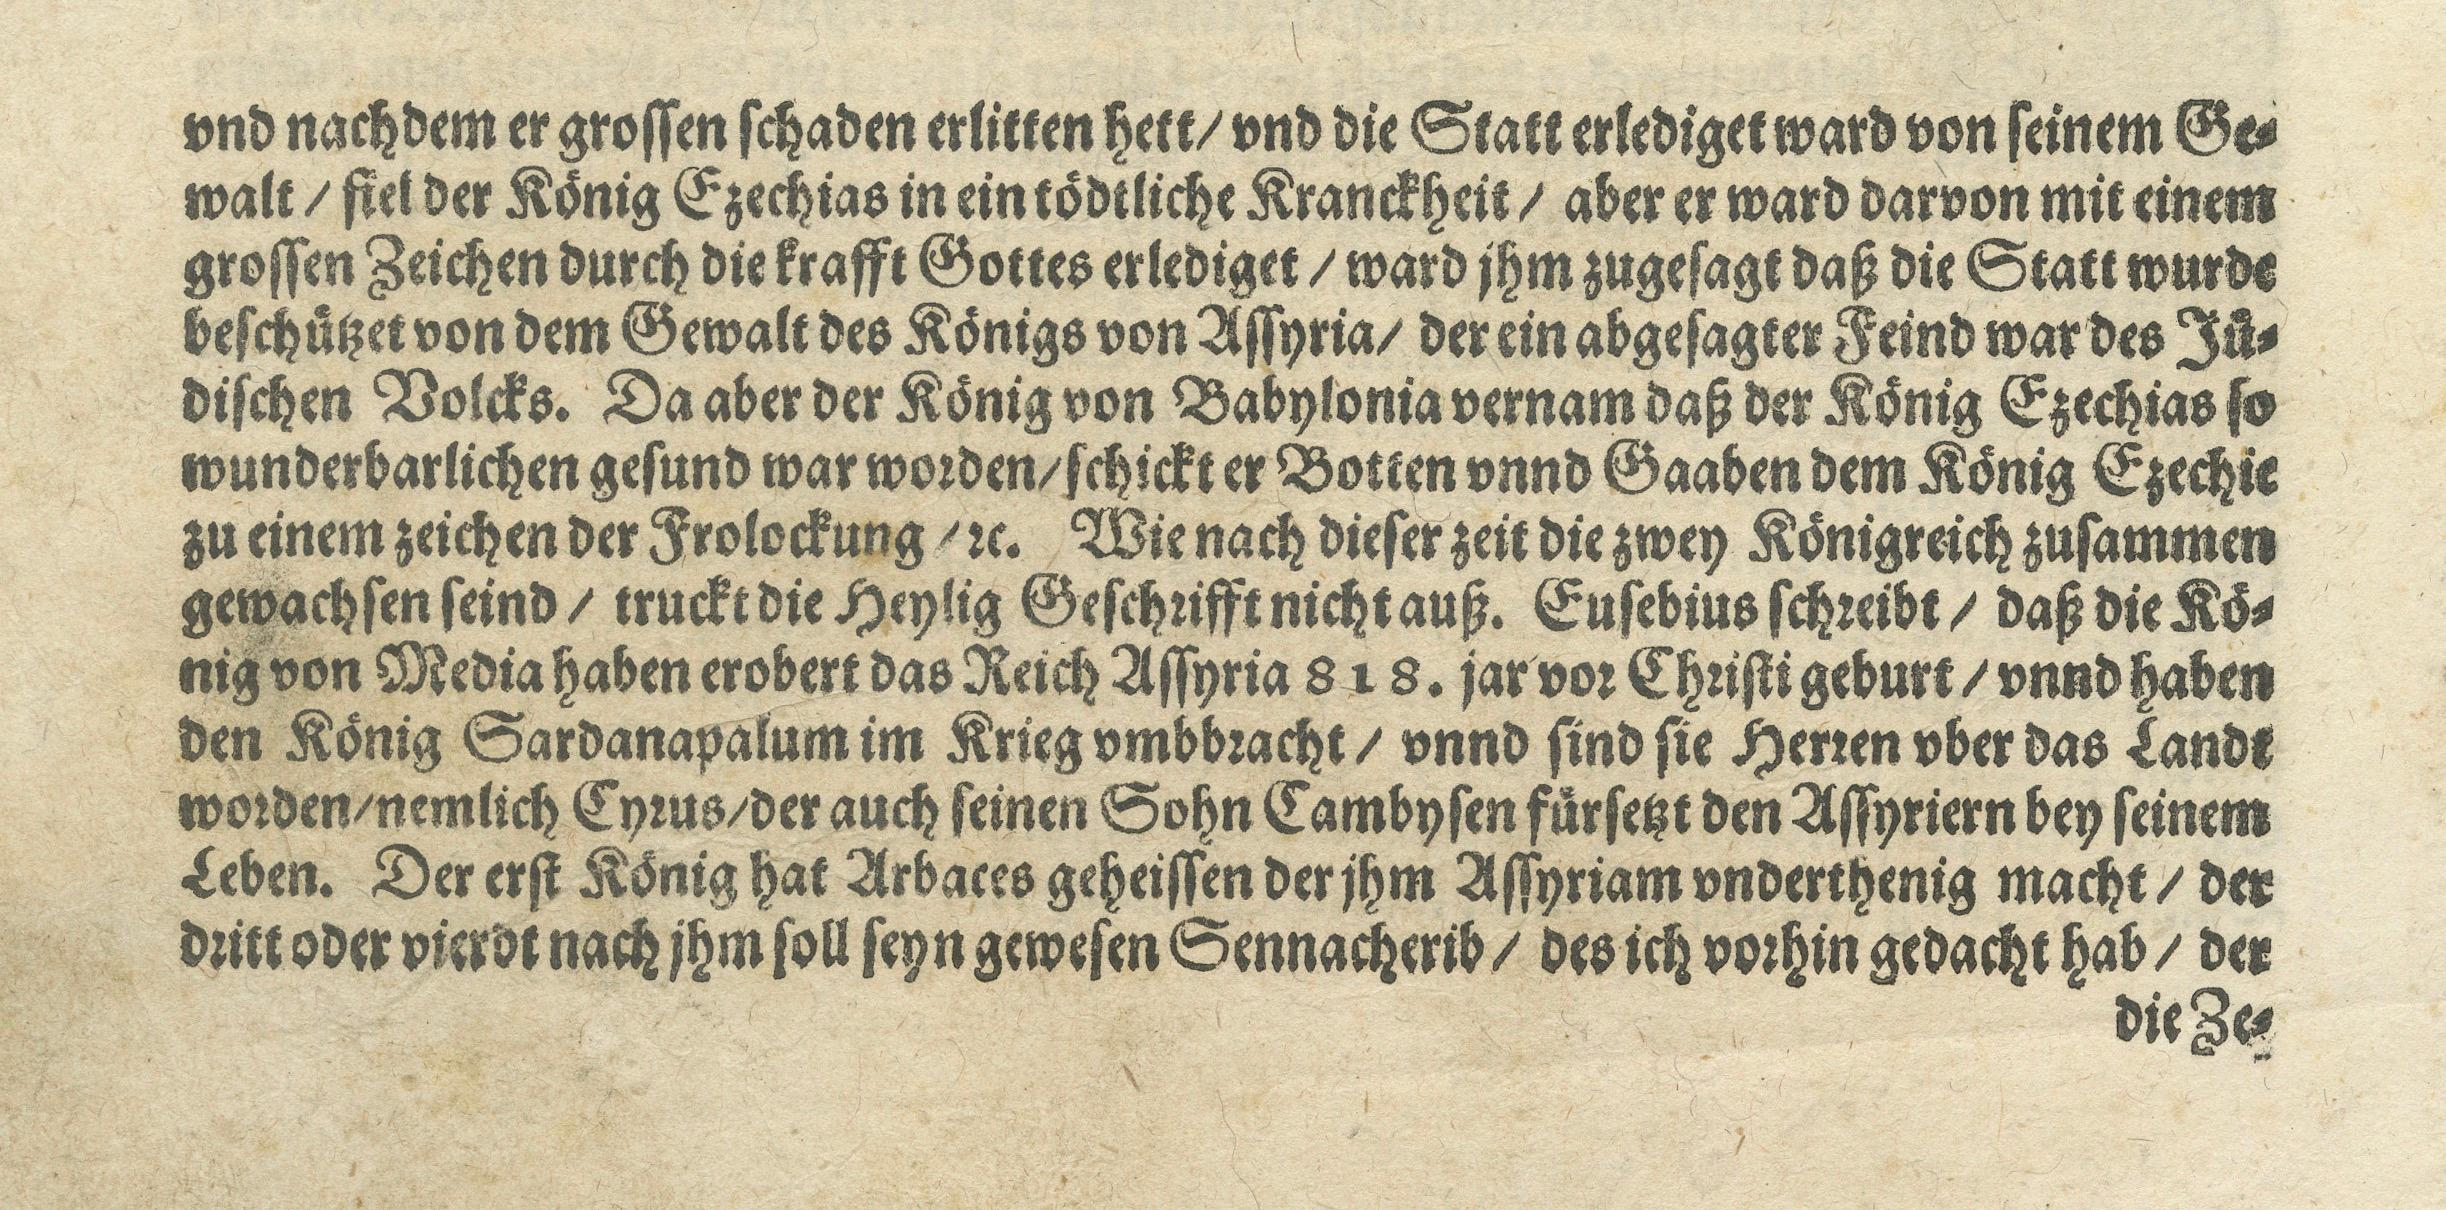 vnd nachdem er grossen schaden erlitten hett/ vnd die Statt erlediget ward von seinem Ge-
walt / fiel der König Ezechias in ein tödtliche Kranckheit / aber er ward darvon mit einem
grossen Zeichen durch die krafft Gottes erlediget / ward jhm zugesagt daß die Statt wurde
beschützet von dem Gewalt des Königs von Assyria/ der ein abgesagter Feind war des Jü-
dischen Volcks. Da aber der König von Babylonia vernam daß der König Ezechias so
wunderbarlichen gesund war worden/schickt er Botten vnnd Gaaben dem König Ezechie
zu einem zeichen der Frolockung /ꝛc. Wie nach dieser zeit die zwey Königreich zusammen
gewachsen seind / truckt die Heylig Geschrifft nicht auß. Eusebius schreibt / daß die Kö-
nig von Media haben erobert das Reich Assyria 818. jar vor Christi geburt / vnnd haben
den König Sardanapalum im Krieg vmbbracht / vnnd sind sie Herren vber das Landt
worden/nemlich Cyrus/der auch seinen Sohn Cambysen fürsetzt den Assyriern bey seinem
Leben. Der erst König hat Arbaces geheissen der jhm Assyriam vnderthenig macht / der
dritt oder vierdt nach jhm soll seyn gewesen Sennacherib / des ich vorhin gedacht hab / der
die Ze-